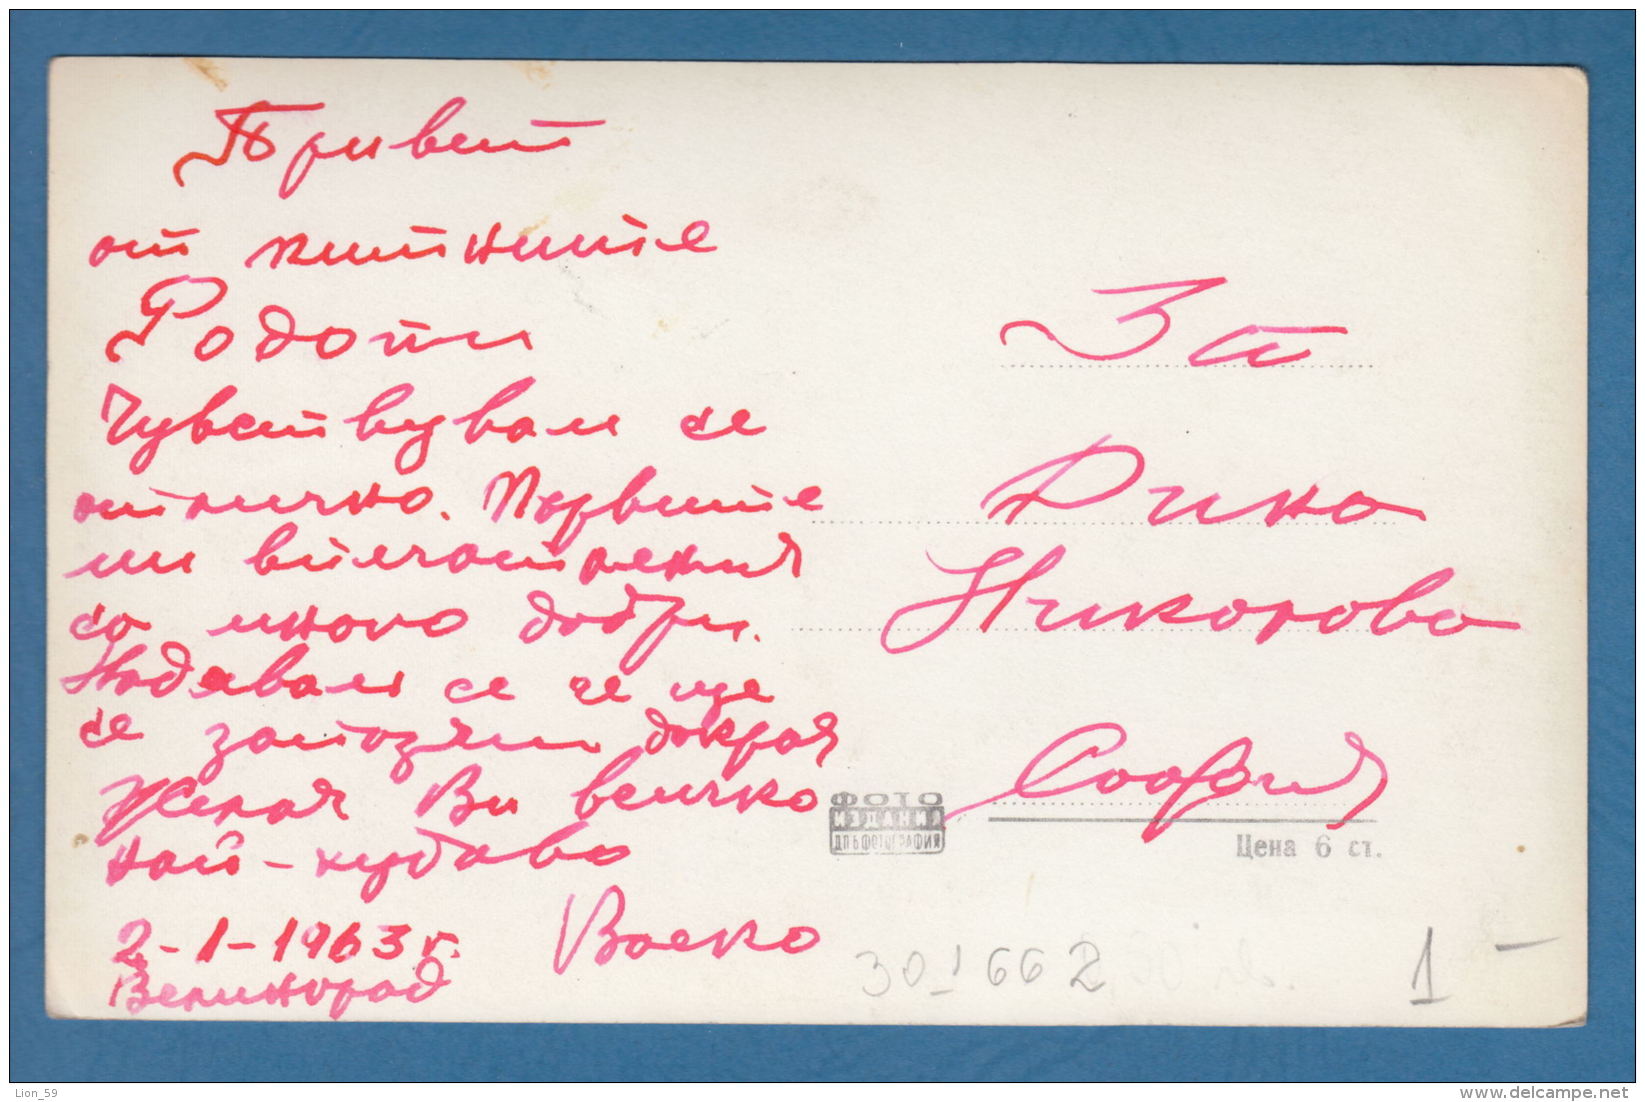 Привет
от китните
Родопи
Чувствувам се
отлично. Първите
ми впечатления
са много добри.
Надявам се че ще
се запозная докрай
Желая Ви всичко
най-хубаво
2-1-1963 г.
Велинград
За
Николова
София
ФОТО
ИЗДАНИЯ
ДП БФОТОГРАФИЯ
Цена 6 ст.
301662
1 -
Lion_59
delcampe.net